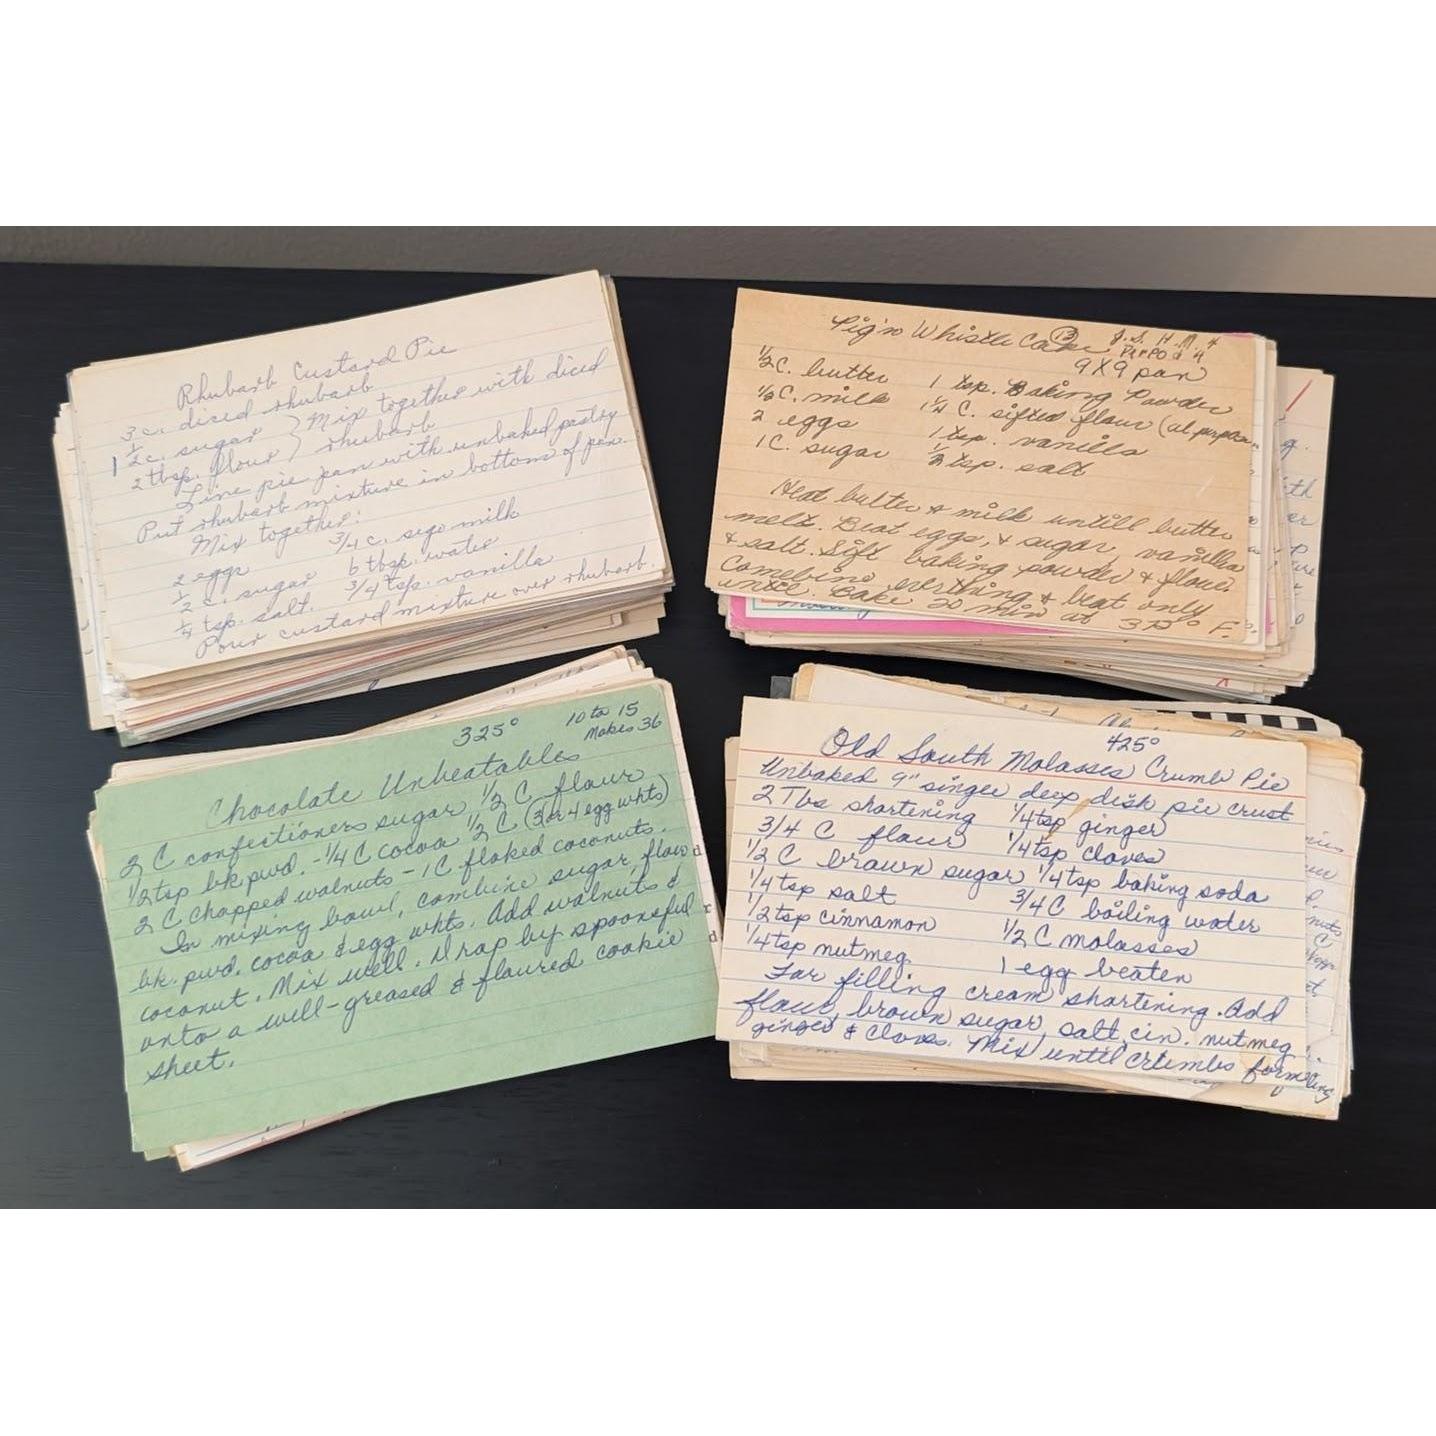 Rhubarb Custard Pie
3 c. diced rhubarb
1 1/2 c. sugar } Mix together with diced
2 tbsp. flour rhubarb
Line pie pan with unbaked pastry
Put rhubarb mixture in bottom of pan.
Mix together:
2 eggs 3/4 c. sego milk
1/2 c. sugar 6 tbsp. water
1/4 tsp. salt. 3/4 tsp. vanilla
Pour custard mixture over rhubarb.
Pig'n Whistle Cake 13 J.S. H.M. 4
9 X 9 pan
1/2 C. butter 1 tsp. Baking Powder
1/2 C. milk 1 1/4 C. sifted flour
2 eggs 1 tsp. vanilla
1 C. sugar 1/2 tsp. salt
Heat butter & milk untill butter
melt. Beat eggs, & sugar, vanilla
& salt. Sift baking powder & flour.
Combine everthing & beat only
until. Bake 20 min at 375° F.
325° 10 to 15
Makes 36
Chocolate Unbeatables
2 C confectioners sugar 1/2 C flour
1/2 tsp bk. pwd. - 1/4 C cocoa 1/2 C (3 or 4 egg whts)
2 C. chopped walnuts - 1 C flaked coconuts.
In mixing bowl, combine sugar, flour
bk. pwd. cocoa & egg whts. Add walnuts &
coconut. Mix well. Drop by spoonsful
onto a well-greased & floured cookie
sheet.
425°
Old South Molasses Crumb Pie
Unbaked 9" singer deep dish pie crust
2 Tbs shortening 1/4 tsp ginger
3/4 C flour 1/4 tsp cloves
1/2 C brown sugar 1/4 tsp baking soda
1/4 tsp salt 3/4 C boiling water
1/2 tsp cinnamon 1/2 C molasses
1/4 tsp nutmeg 1 egg beaten
For filling cream shortening. Add
flour, brown sugar, salt, cin. nutmeg
ginger & cloves. Mix until crumbs form